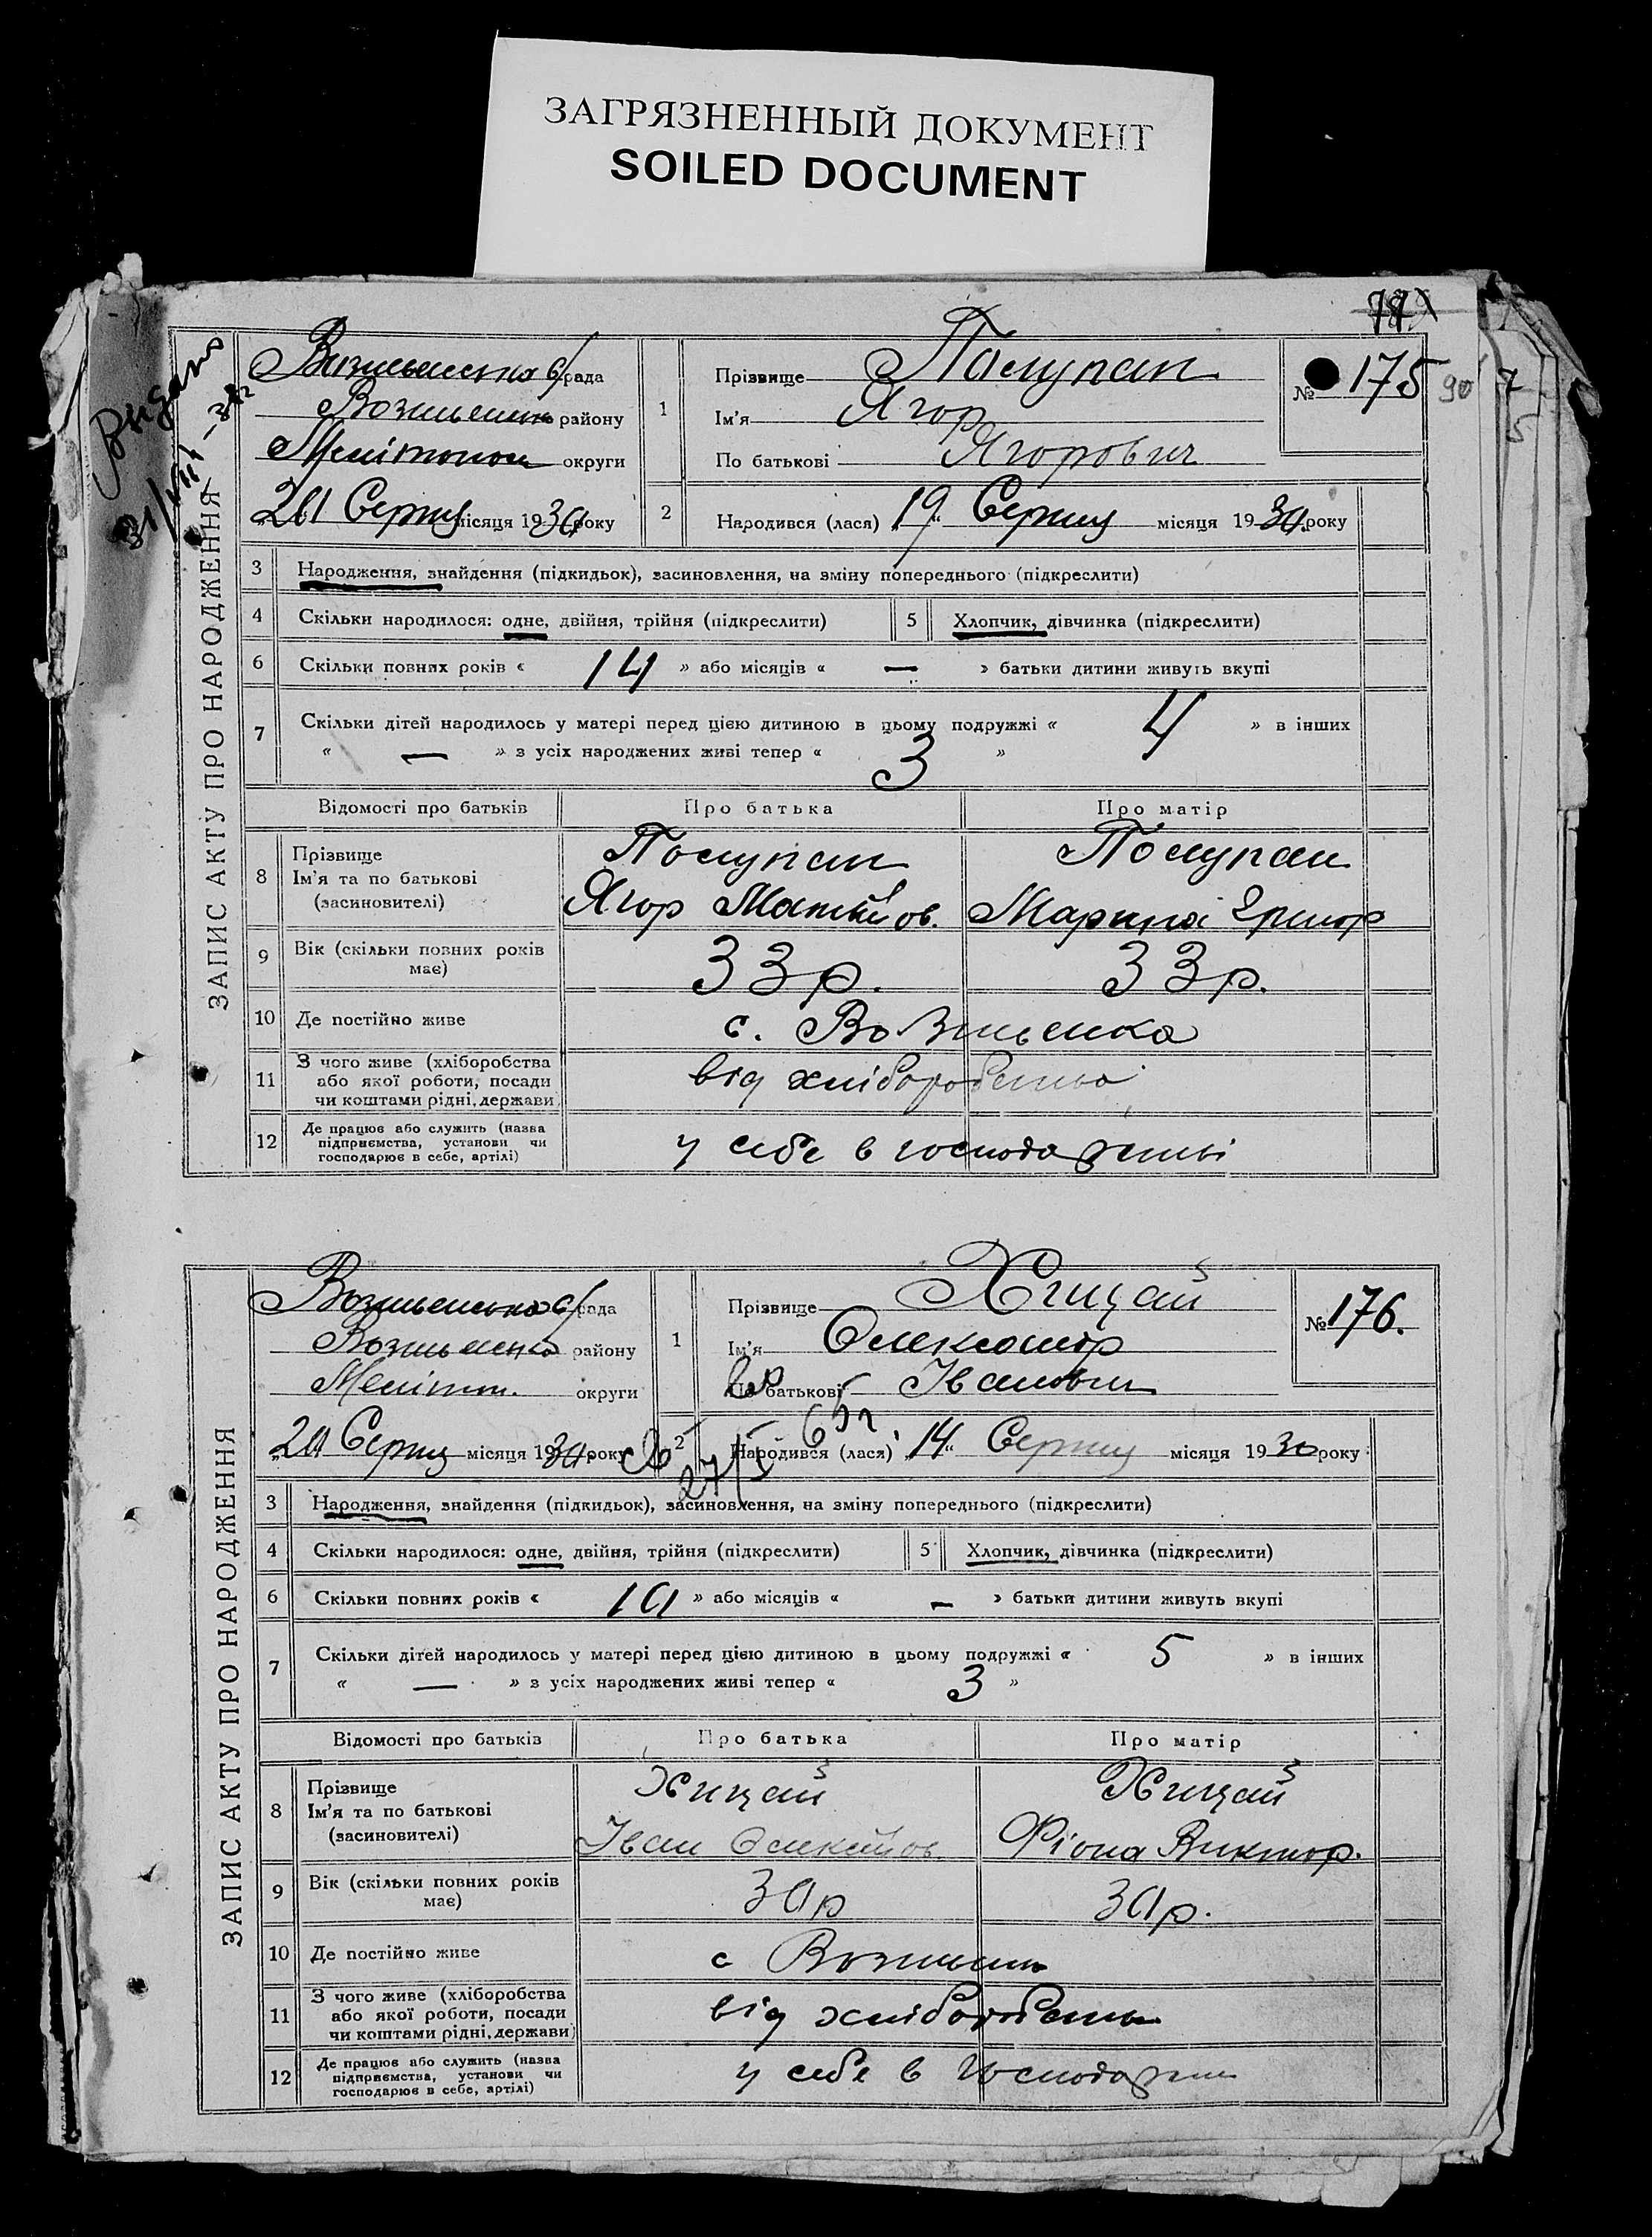 ЗАГРЯЗНЕННЫЙ ДОКУМЕНТ
SOILED DOCUMENT
Видано
31/VIII
ЗАПИС АКТУ ПРО НАРОДЖЕННЯ
рада
району
округи
20 Серпня місяця 1930 року
1
Прізвище Полупан
Ім'я Ягор
По батькові Ягорович
№ 175
90
2
Народився (лася) 19 „ Серпня місяця 1930 року
3 Народження, знайдення (підкидьок), засиновлення, на зміну попереднього (підкреслити)
4 Скільки народилося: одне, двійня, трійня (підкреслити) 5 Хлопчик, дівчинка (підкреслити)
6 Скільки повних років « 14 » або місяців « — » батьки дитини живуть вкупі
7 Скільки дітей народилось у матері перед цією дитиною в цьому подружжі « 4 » в інших
« — » з усіх народжених живі тепер « 3 »
Відомості про батьків Про батька Про матір
8 Прізвище Полупан Полупан
Ім'я та по батькові
(засиновителі) Ягор Матвійов. Марина Григор
9 Вік (скільки повних років має) 33 р. 33 р.
10 Де постійно живе с. Вознесенка
11 З чого живе (хліборобства
або якої роботи, посади
чи коштами рідні, держави) від хліборобства
12 Де працює або служить (назва
підприємства, установи чи
господарює в себе, артілі) у себе в господарстві
ЗАПИС АКТУ ПРО НАРОДЖЕННЯ
рада
району
Мелітоп. округи
20 Серпня місяця 1930 року
1
Прізвище Хицай
Ім'я Олександр
По батькові Іванович
№ 176.
27/
2
Народився (лася) 14 „ Серпня місяця 1930 року
3 Народження, знайдення (підкидьок), засиновлення, на зміну попереднього (підкреслити)
4 Скільки народилося: одне, двійня, трійня (підкреслити) 5 Хлопчик, дівчинка (підкреслити)
6 Скільки повних років « 10 » або місяців « — » батьки дитини живуть вкупі
7 Скільки дітей народилось у матері перед цією дитиною в цьому подружжі « 5 » в інших
« — » з усіх народжених живі тепер « 3 »
Відомості про батьків Про батька Про матір
8 Прізвище Хицай Хицай
Ім'я та по батькові
(засиновителі) Іван Олексійов. Фіона Виктор.
9 Вік (скільки повних років має) 30 р 30 р.
10 Де постійно живе с
11 З чого живе (хліборобства
або якої роботи, посади
чи коштами рідні, держави) від хліборобства
12 Де працює або служить (назва
підприємства, установи чи
господарює в себе, артілі) у себе в господарст